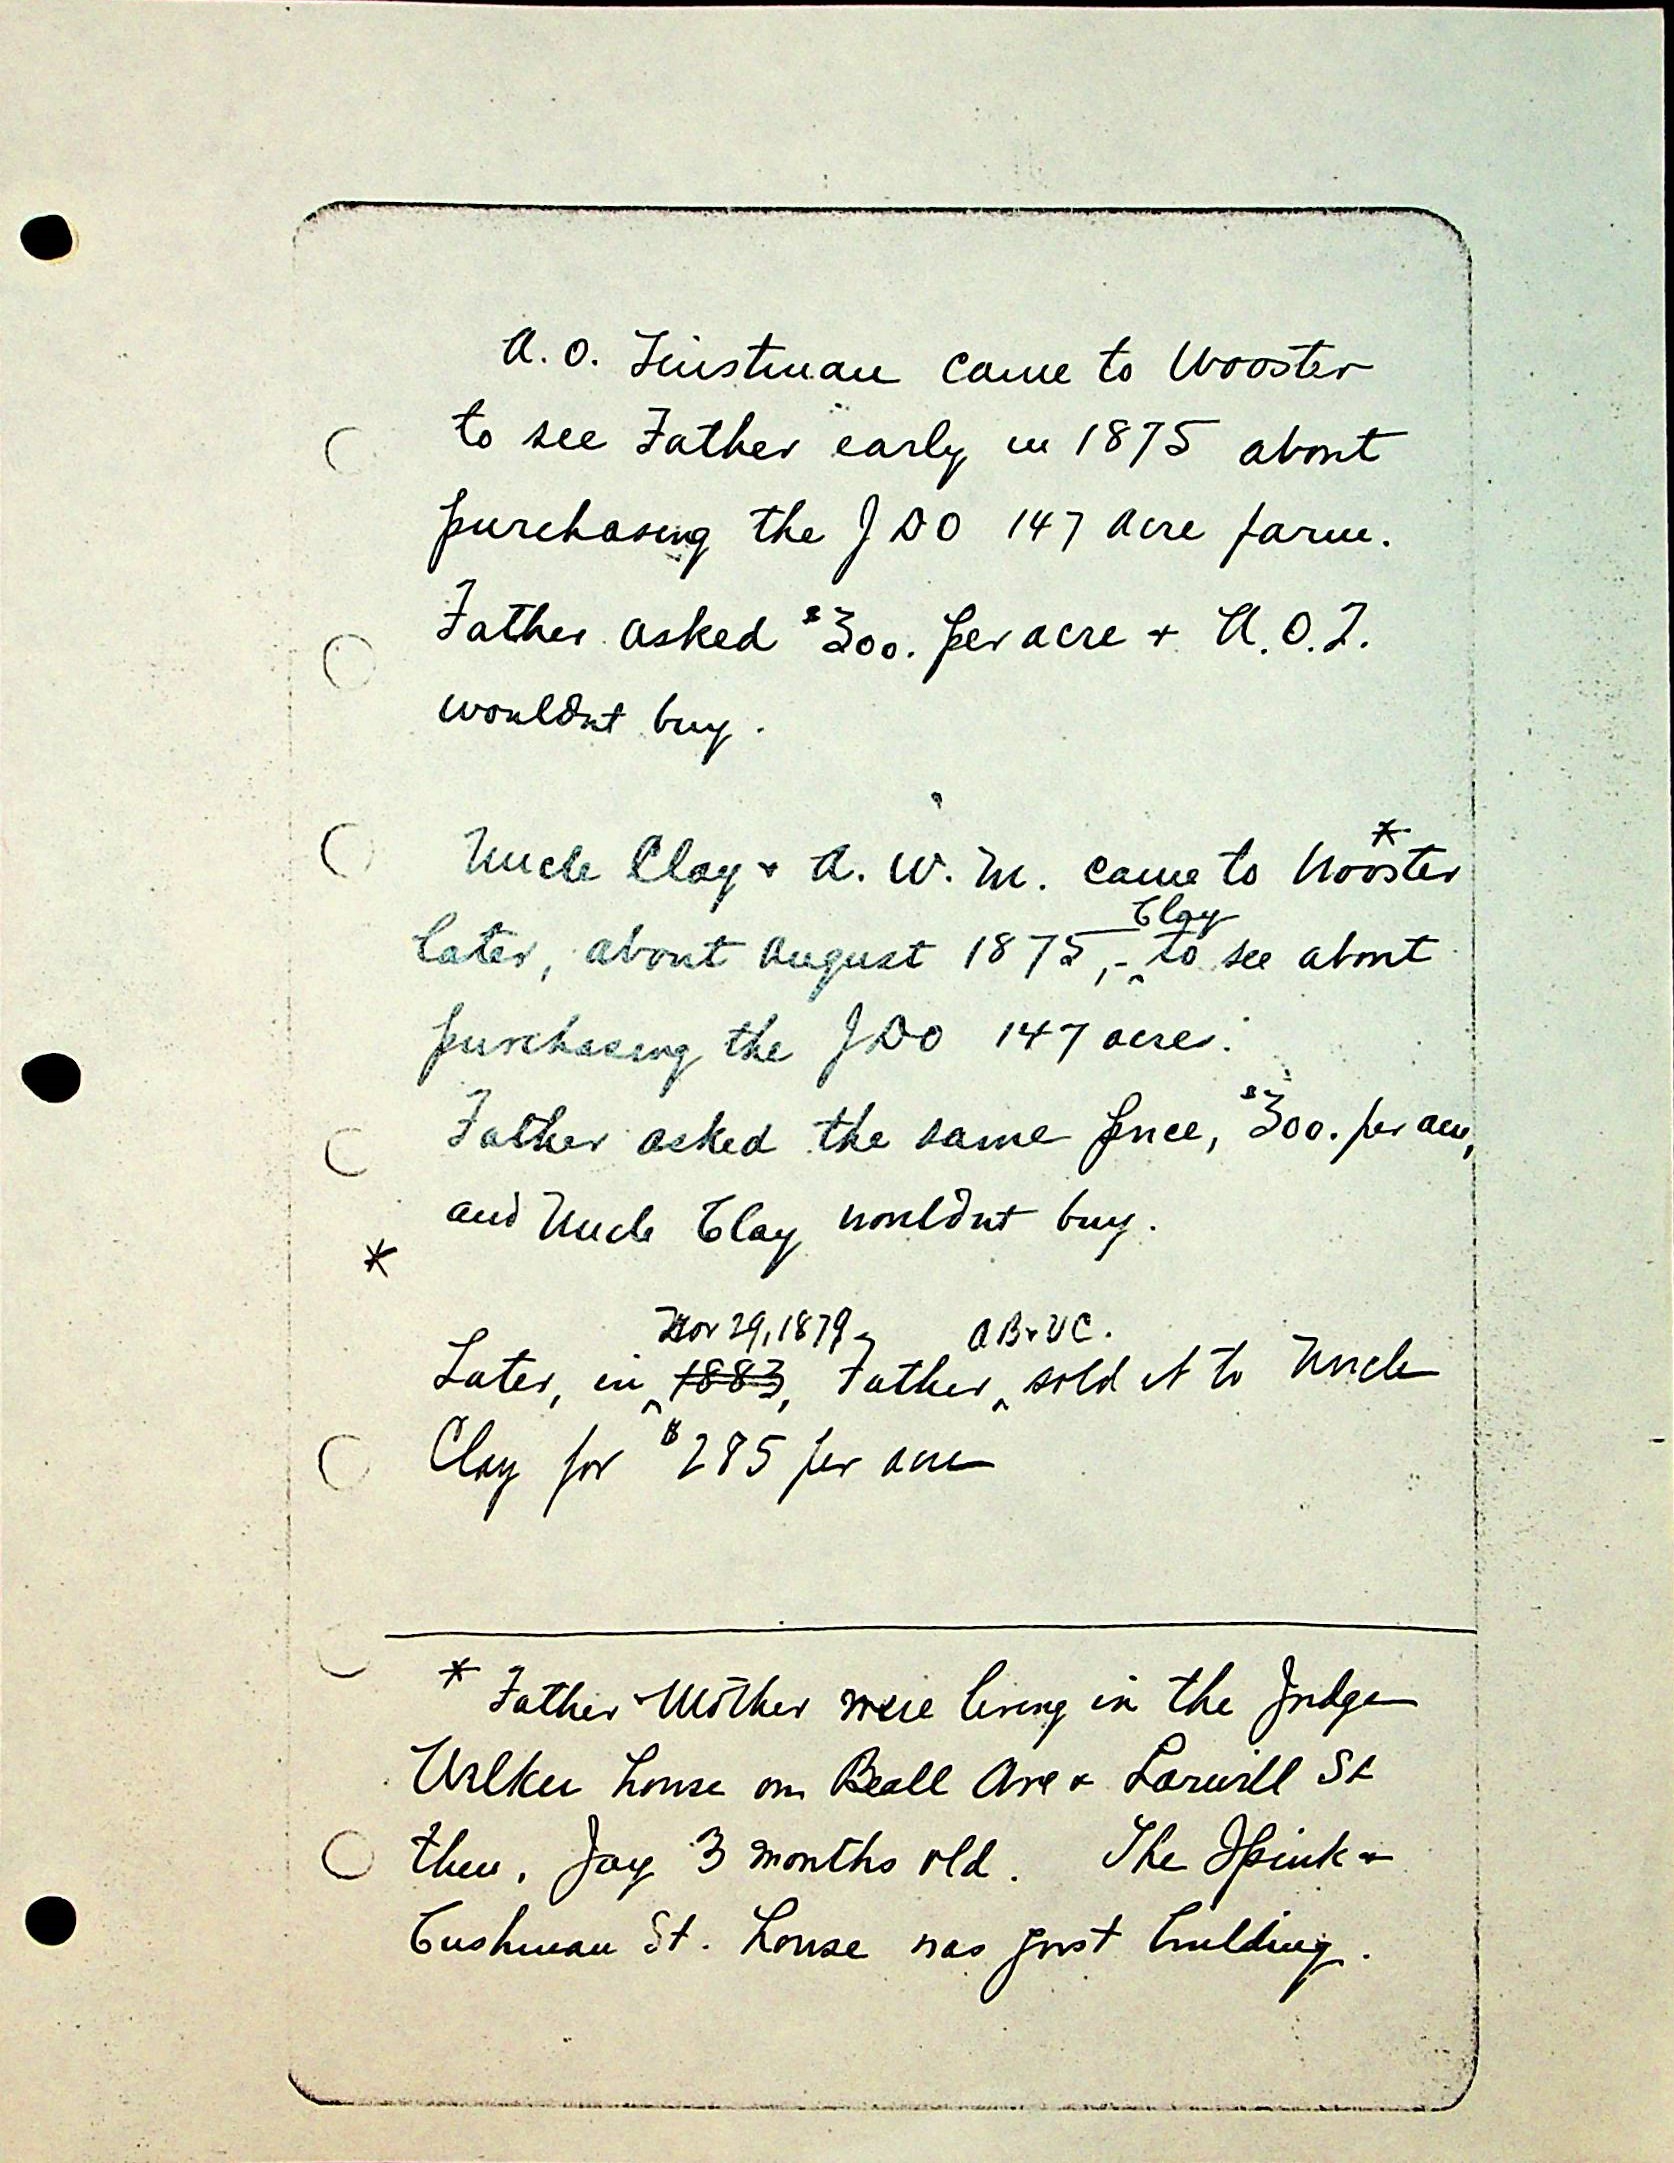 A. O. Tinstman came to Wooster
to see Father early in 1875 about
purchasing the JDO 147 acre farm.
Father asked $300. per acre + A.O.T.
wouldnt buy.
Uncle Clay + A. W. M. came to Wooster *
Clay
later, about August 1875, - ^ to see about
purchasing the JDO 147 acres.
Father asked the same price, $300. per acre,
and Uncle Clay wouldnt buy.
*
Nov 29, 1879, AB+UC.
Later, in ^ 1883, Father ^ sold it to Uncle
Clay for $285 per acre
* Father + Mother were living in the Judge
house on Beall Ave + Larwill St
then. Jay 3 months old. The Spink +
Cushman St. house was just building.